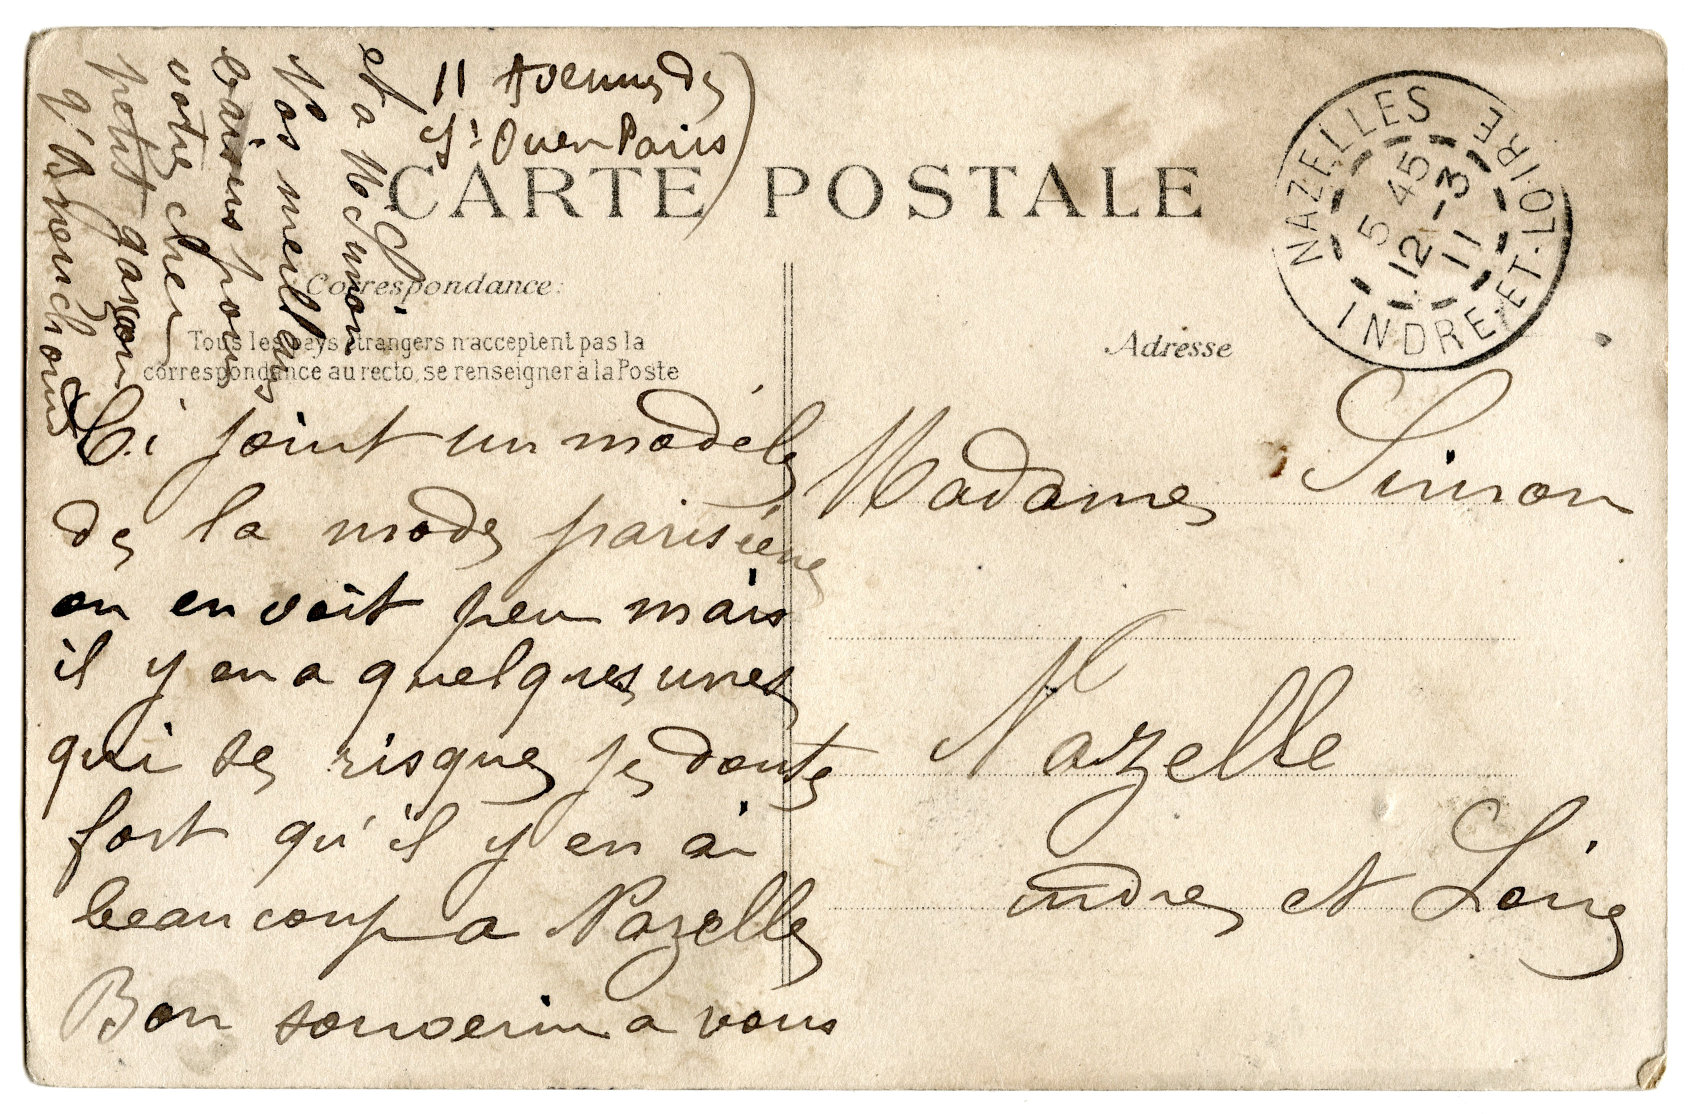 11 Avenue de
St Ouen Paris
CARTE POSTALE
NAZELLES INDRE-ET-LOIRE
5 45
12 -3
11
Correspondance:
Adresse
Tous les pays étrangers n'acceptent pas la
correspondance au recto, se renseigner à la Poste
Ci joint un modéle
de la mode parisiéne
on en voit peu mais
il y en a quelques unes
qui se risque je doute
fort qu'il y en ai
beaucoup a Nazelle
Bon souvenir a vous
et a Mr Simon
Nos meilleurs
baisers pour
votre cher
petit garçon
Madame Simon
Nazelle
indre et Loire